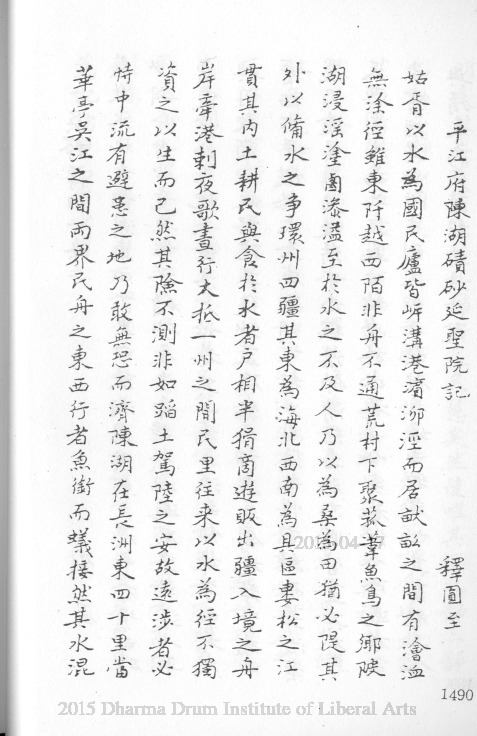 平江府陳湖磧砂延聖院記
釋圓至
姑胥以水為國民廬皆岸溝港濱泖涇而居畎畝之間有澮洫
無塗徑雖東阡越西陌非舟不通荒村下聚菰葦魚鳥之鄉陂
湖浸淫塗鹵漭溢至於水之不及人乃以為桑為田猶必隄其
外以備水之爭環州四疆其東為海北西南為具區婁松之江
貫其內土耕民與食於水者戶相半狷商遊販出疆入境之舟
岸牽港刺夜歌晝行大抵一州之間民里往来以水為徑不獨
資之以生而已然其險不測非如蹈土駕陸之安故遠涉者必
恃中流有避患之地乃敢無恐而濟陳湖在長洲東四十里當
華亭吳江之間兩界民舟之東西行者魚銜而蟻接然其水混
1490
2015 Dharma Drum Institute of Liberal Arts